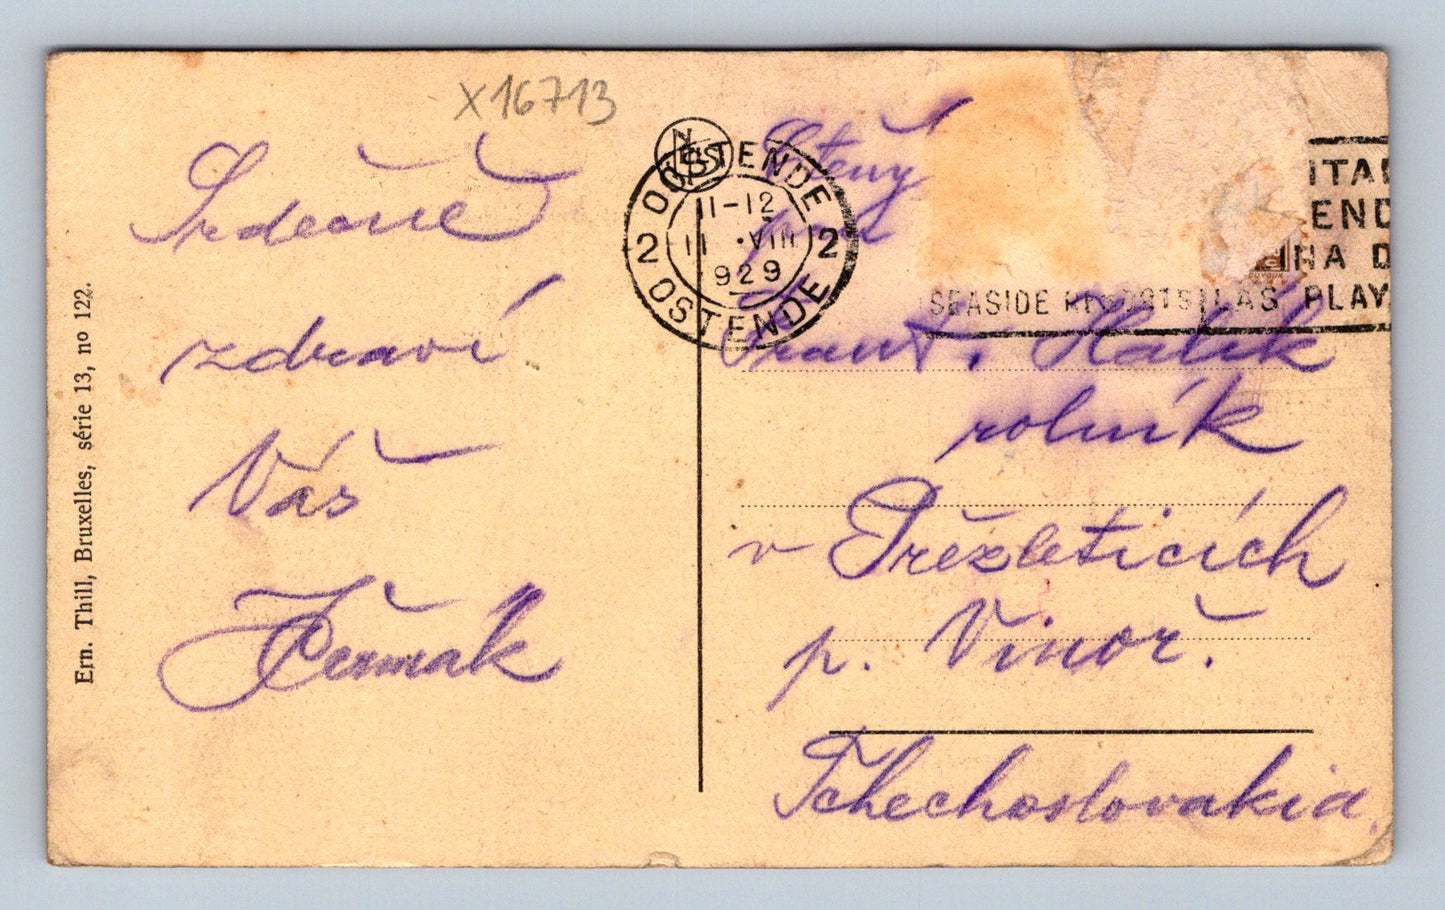 X16713
Srdečně
zdraví
Váš
JČermák
Ern. Thill, Bruxelles, série 13, no 122.
NELS
OOSTENDE
11-12
2 11 · VIII 2
929
OSTENDE
ITA
END
INA D
SEASIDE RESORTS LAS PLAY
Ctěný
pan
Frant. Halík
rolník
v Přezleticích
p. Vinoř.
Tchechoslovakia.